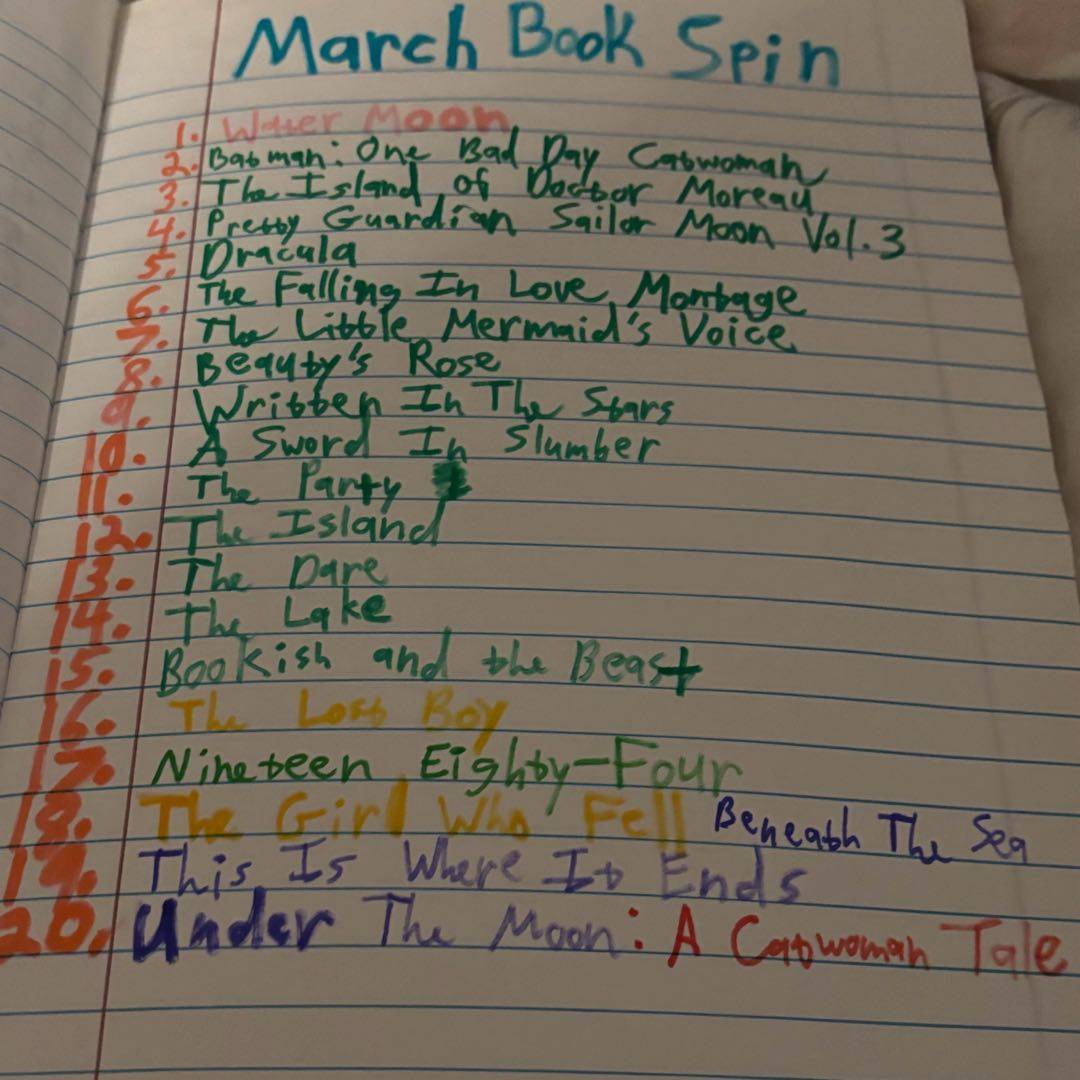 March Book Spin
1. Water Moon
2. Batman: One Bad Day Catwoman
3. The Island of Doctor Moreau
4. Pretty Guardian Sailor Moon Vol. 3
5. Dracula
6. The Falling In Love Montage
7. The Little Mermaid's Voice
8. Beauty's Rose
9. Written In The Stars
10. A Sword In Slumber
11. The Party
12. The Island
13. The Dare
14. The Lake
15. Bookish and the Beast
16. The Lost Boy
17. Nineteen Eighty-Four
18. The Girl Who Fell Beneath The Sea
19. This Is Where It Ends
20. Under The Moon: A Catwoman Tale